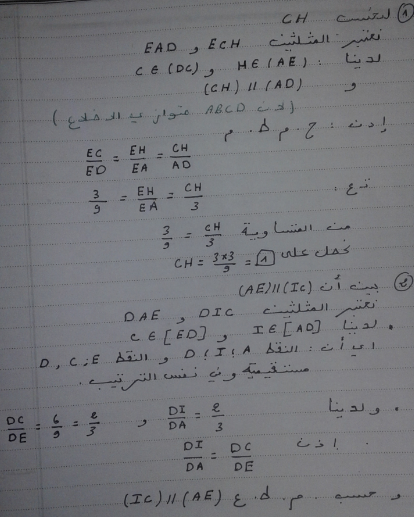 ① لنحسب CH
نعتبر المثلثين ECH و EAD
لدينا : H∈(AE) و C∈(DC)
و (CH) // (AD)
(لأن ABCD متوازي الأضلاع)
إذن : ح . م . ط . م
EC/ED = EH/EA = CH/AD
ت ع : 3/9 = EH/EA = CH/3
من المتساوية 3/9 = CH/3
نحصل على CH = 3×3/9 = 1
② بين أن (AE)//(IC)
نعتبر المثلثين DIC و DAE
• لدينا I∈[AD] و C∈[ED]
أي أن : النقط D ; I ; A و النقط D , C ; E
مستقيمية وفي نفس الترتيب .
• ولدينا DI/DA = 2/3 و DC/DE = 6/9 = 2/3
إذن DI/DA = DC/DE
و حسب . م . ط . ع (IC) // (AE)